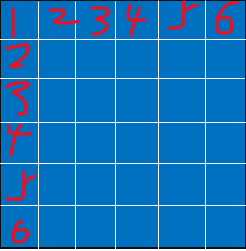 1 2 3 4 5 6
2
3
4
5
6